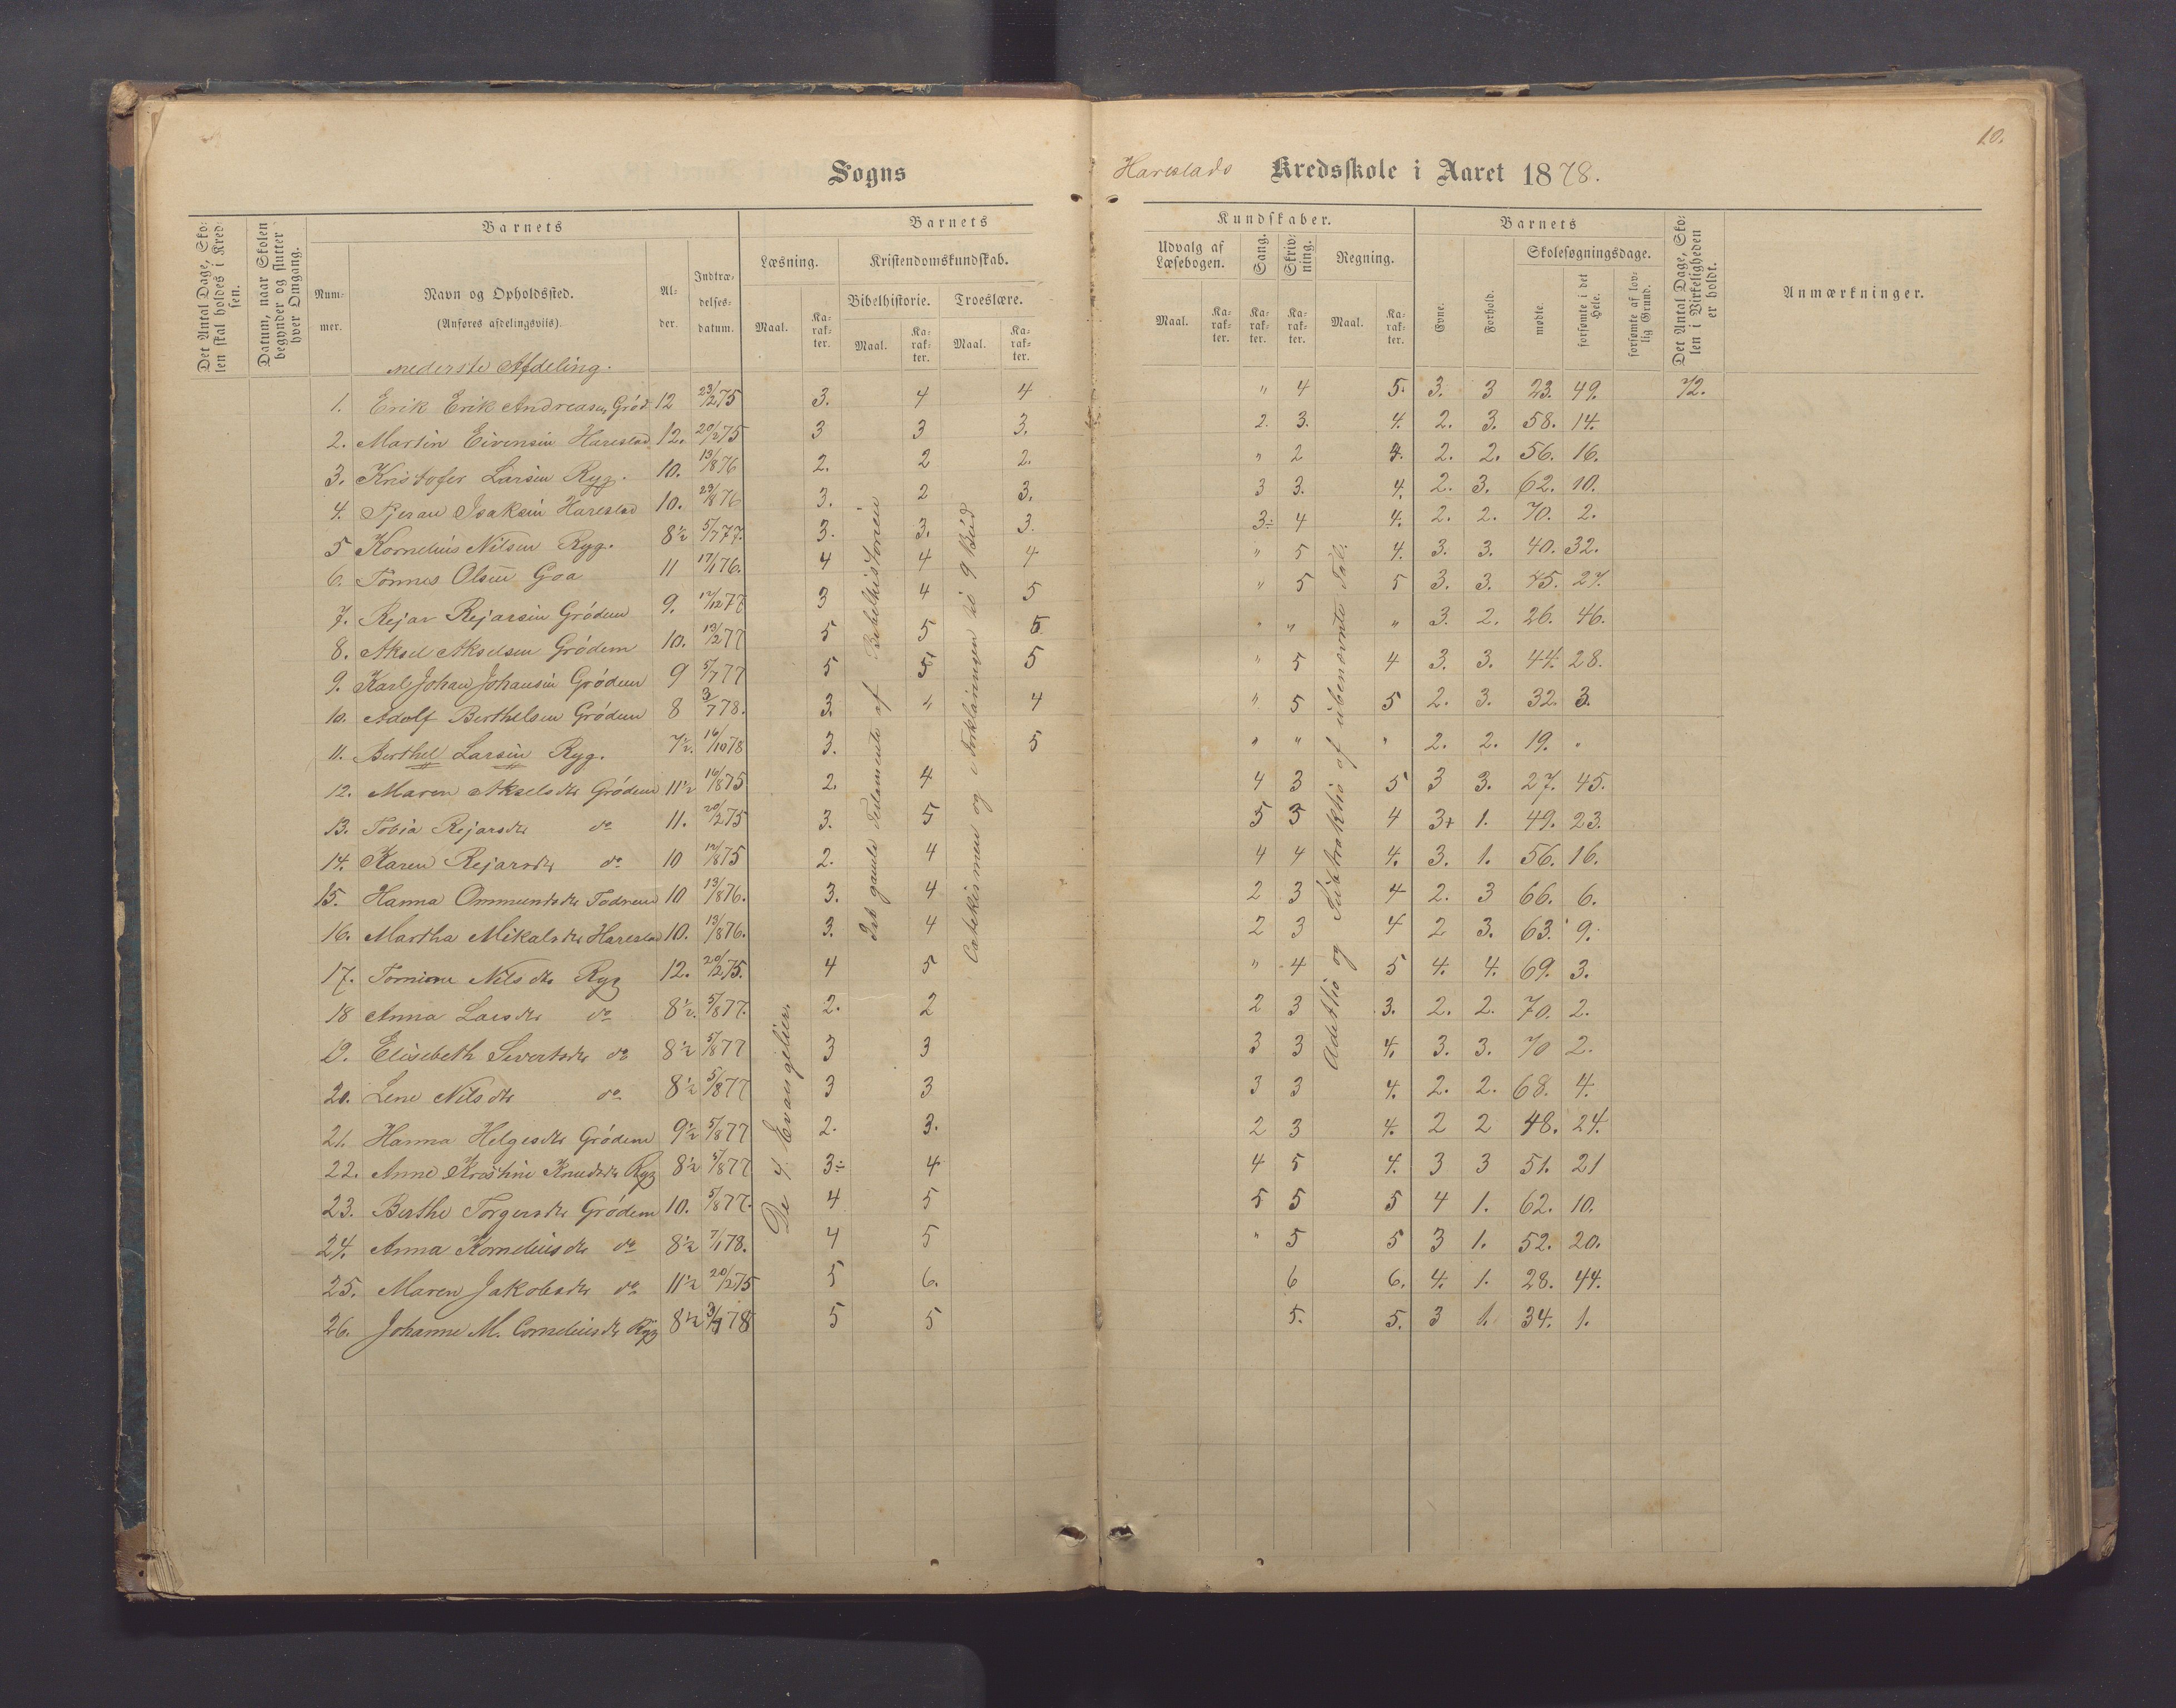 10.
Sogns
Harestads Kredsskole i Aaret 1878.
Det Antal Dage, Skolen skal holdes i Kredsen.
Datum, naar Skolen begynder og slutter hver Omgang.
Barnets
Nummer.
Navn og Opholdssted.
(Anføres afdelingsviis).
Alder.
Indtrædelses-datum.
Barnets
Læsning.
Kristendomskundskab.
Bibelhistorie. Troeslære.
Maal. Karakter. Maal. Karakter. Maal. Karakter.
Kundskaber.
Udvalg af Læsebogen. Sang. Skrivning. Regning.
Maal. Karakter. Karakter. Karakter. Maal. Karakter.
Barnets
Evne. Forhold.
Skolesøgningsdage.
mødte. forsømte i det Hele. forsømte af lovlig Grund.
Det Antal Dage, Skolen i Virkeligheden er holdt.
Anmærkninger.
nederste Afdeling.
1. Erik Erik Andreasen Grød 12 23/2 75 3. 4 4 " 4 5. 3. 3 23. 49. 72.
2. Martin Eivensen Harestad 12. 20/2 75 3 3 3. 2. 3. 4. 2. 3. 58. 14.
3. Kristofer Larsen Ryg. 10. 13/8 76 2. 2 2. " 2 4. 2. 2. 56. 16.
4. Isaksen Harestad 10. 29/8 76 3. 2 3. 3 3. 4. 2. 3. 62. 10.
5 Kornelius Nilsen Ryg. 8½ 5/7 77. 3. 3. 3. 3÷ 4 4. 2. 2. 70. 2.
6. Tønnes Olsen Goa 11 17/1 76. 4 4 4 " 5 4. 3. 3. 40. 32.
7. Rejar Rejarsen Grødem 9. 12/12 77 3 4 5 " 5 5 3. 3. 45. 27.
8. Aksel Akselsen Grødem 10. 13/2 77 5 5 5 " " " 3. 2. 26. 46.
9. Karl Johan Johansen Grødem 9 5/7 77 5 5+ 5 " 5 4 3. 3. 44. 28.
10. Adolf Berthelsen Grødem 8 3/7 78. 3. " 4 " 5 5 2. 3. 32. 3.
11. Berthel Larsen Ryg. 7½. 16/10 78 3. 5 " " " 2. 2. 19. "
12. Maren Akselsdtr Grødem 11½ 16/8 75 2. 4 4 3 5 3 3. 27. 45.
13. Tobia Rejarsdtr do 11. 20/2 75 3. 5 5 5 4 3+ 1. 49. 23.
14. Karen Rejarsdtr do 10 12/8 75 2. 4 4 4 4. 3. 1. 56. 16.
15. Hanna Ommundsdtr Todnem 10 13/8 76. 3. 4 2 3 4 2. 3 66. 6.
16. Martha Mikalsdtr Harestad 10. 13/8 76. 3. 4 2 3 4 2 3. 63. 9.
17. Nilsdtr Ryg 12. 20/2 75. 4 5 " 4 5 4. 4. 69. 3.
18 Anna Larsdtr do 8½. 5/8 77. 2. 2 2 3 3. 2. 2. 70. 2.
19. Elisebeth Sivertsdtr do 8½ 5/8 77 3 3 3 3 4. 3. 3. 70 2.
20. Lene Nilsdtr do 8½ 5/8 77 3 3 3 3 4. 2. 2. 68. 4.
21. Hanna Helgesdtr Grødem 9½ 5/8 77 2. 3. 2 3 4. 2 2 48. 24.
22. Anne Kristine Knudsdtr Ryg 8½ 5/8 77 3÷ 4 4 5 4. 3 3 51. 21
23. Berthe Torgersdtr Grødem 10. 5/8 77. 4 5 5 5 5 4 1. 62. 10.
24. Anna Korneliusdtr do 8½ 7/1 78. 4 5 " 5 5 3 1. 52. 20.
25. Maren Jakobsdtr do 11½ 20/2 75 5 6. 6 6. 4. 1. 28. 44.
26. Johanne M. Corneliusdtr Ryg 8½ 3/7 78 5 5 5. 5. 3 1. 34. 1.
De 4 Evangelier.
Det gamle Testamente af Bibelhistorien
Catekismen og i Forklaringen til 9 Bud
Addittio og Subtraktio af ubenævnte Tal.